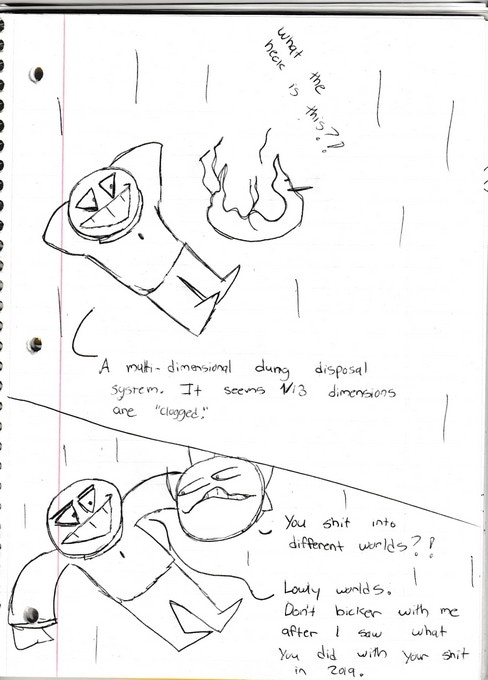 What the
heck is
this??!
A multi-dimensional dung disposal
system. It seems 1/13 dimensions
are "clogged."
You shit into
different worlds?!
Lowly worlds.
Don't bicker with me
after I saw what
you did with your shit
in 2019.